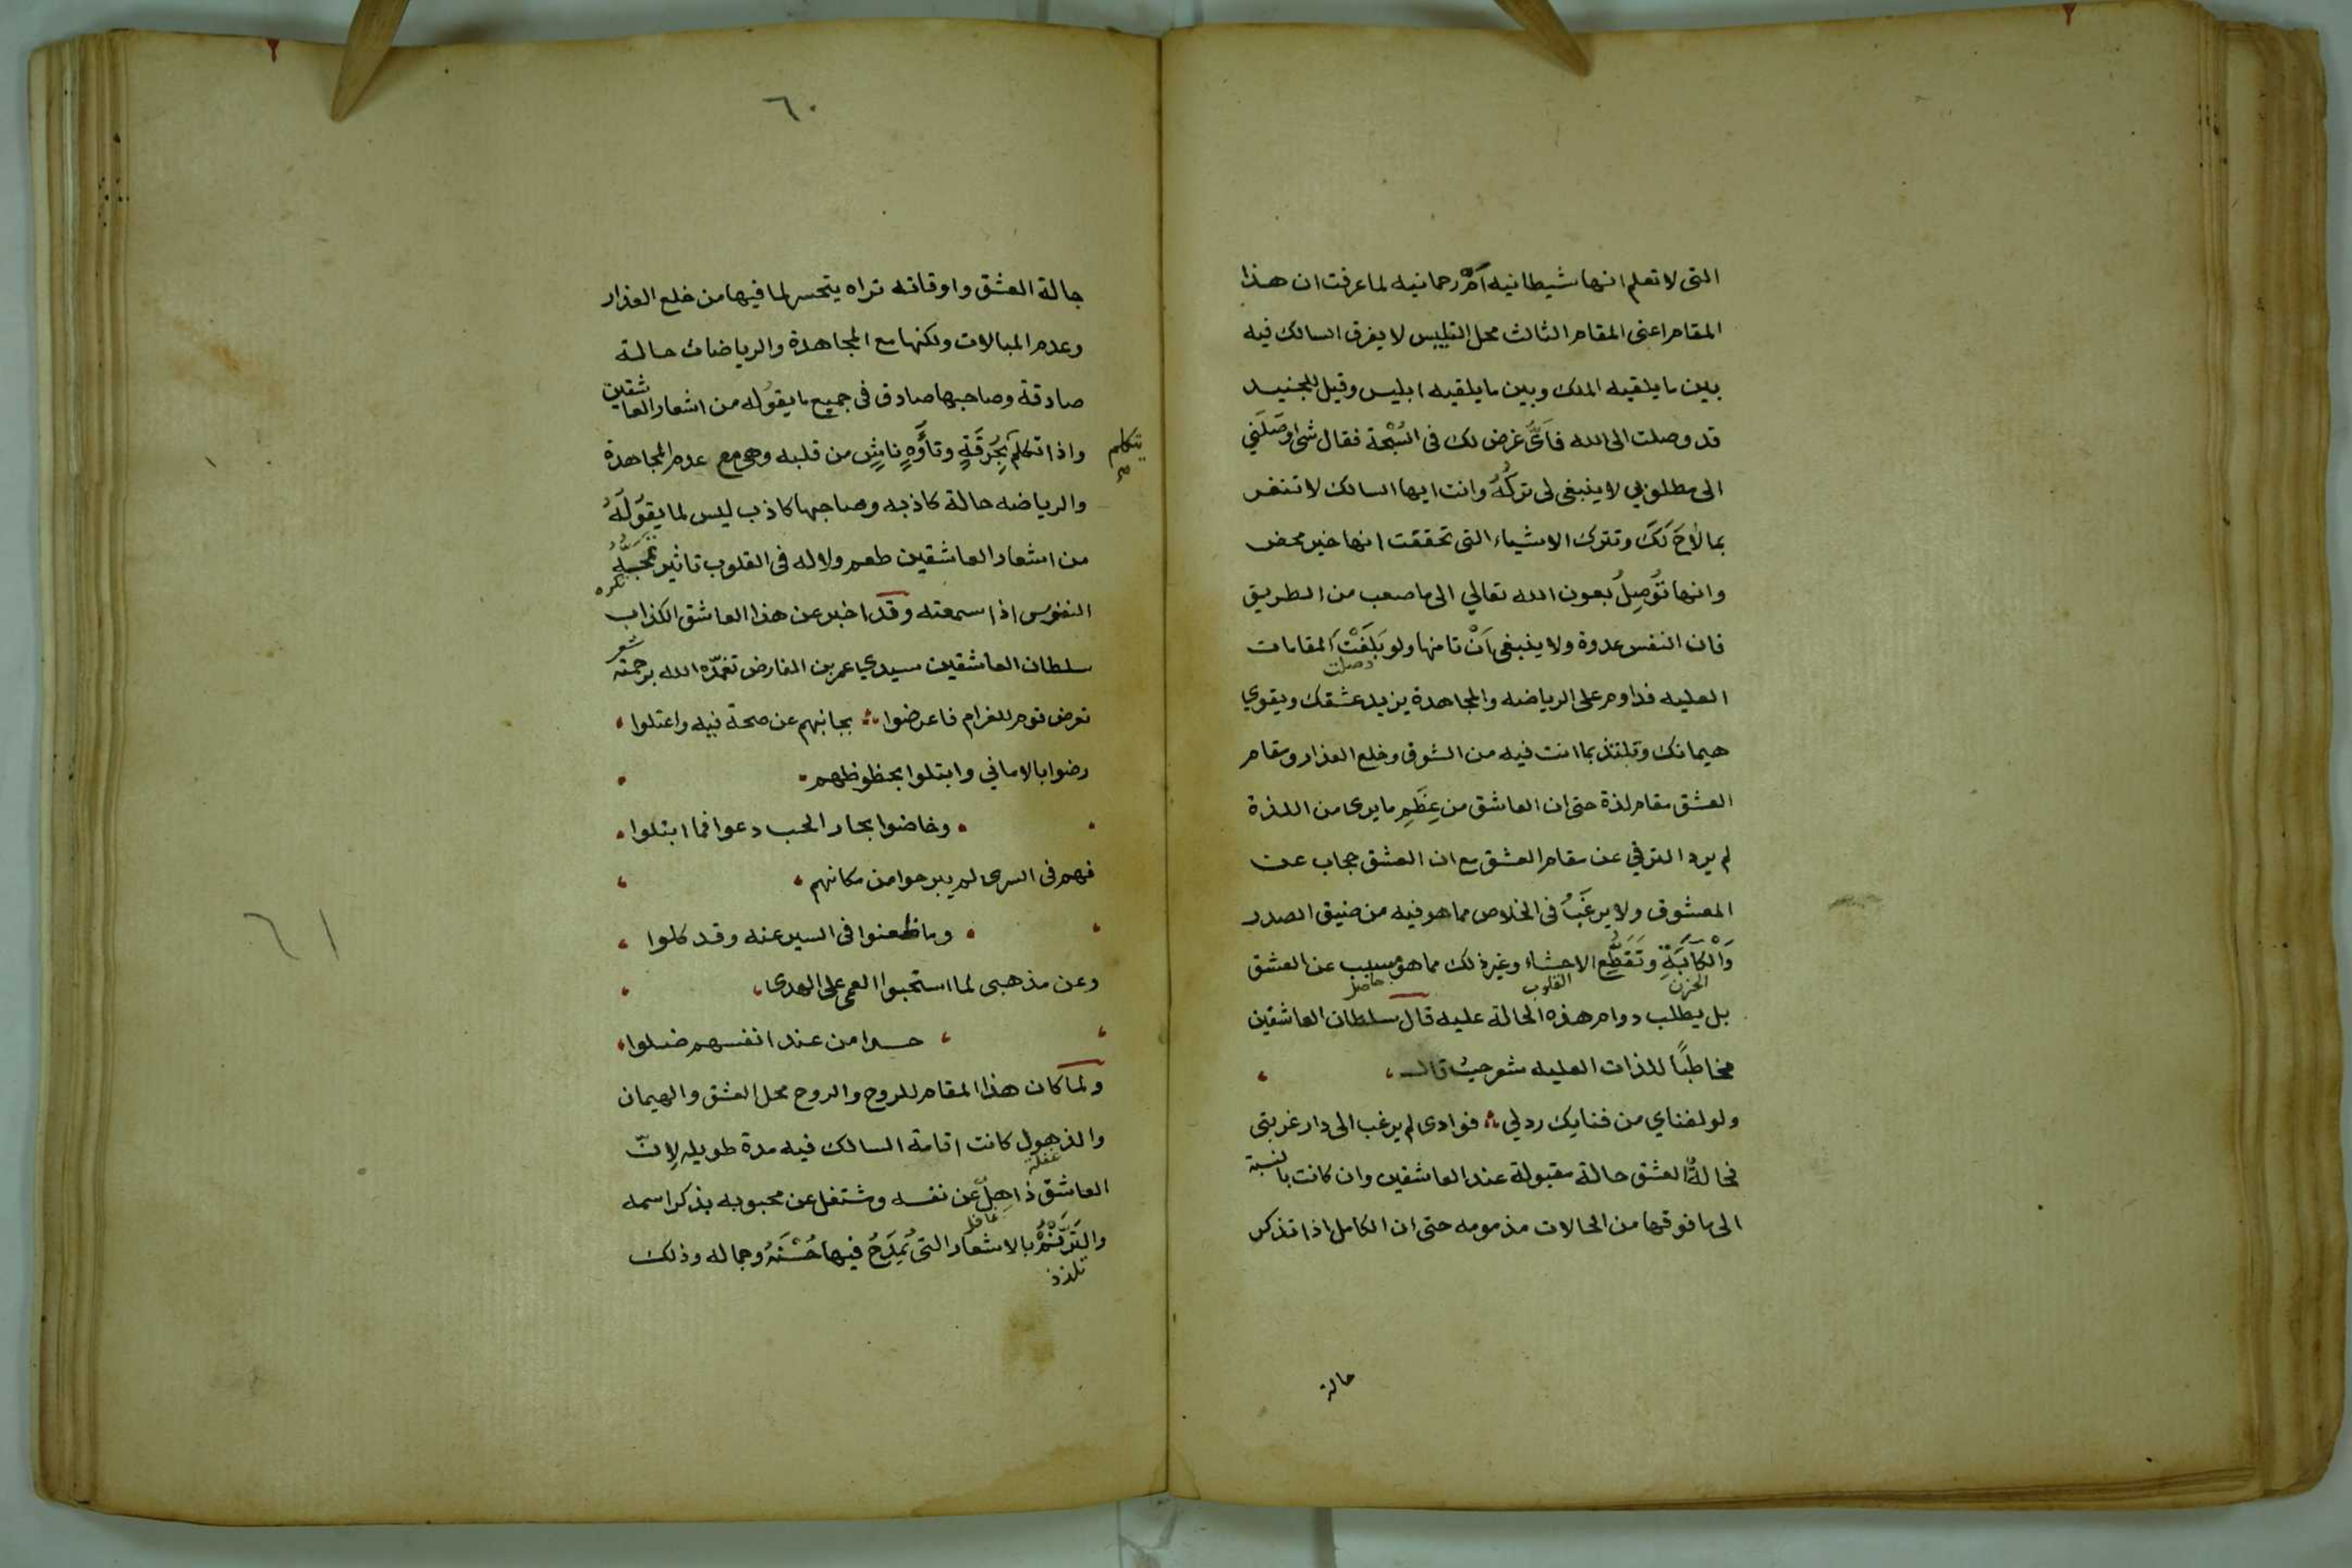 التى لا تعلم انها شيطانيه اَمْ رحمانيه لما عرفت ان هذا
المقام اعنى المقام الثالث محل التلبيس لا يفرق السالك فيه
بين ما يلقيه الملك وبين ما يلقيه ابليس وقيل للجنيد
قد وصلت الى الله فاَىُّ غرض لك فى السُبْحة فقال شئ اوصَلَني
الى مطلوبي لا ينبغى لى تركُهُ وانت ايها السالك لا تنغر
بما لاَحَ لَكَ وتترك الاشياء التى تحققت انها خير محض
وانها تُوصِلُ بعون الله تعالي الى ما صعب من الطريق
فان النفس عدوة ولا ينبغى اَنْ تامنها ولو بَلَغَتْ المقامات
وصلت
العليه فداوم على الرياضه والمجاهدة يزيد عشقك ويقوي
هيمانك وتلتذ بما انت فيه من الشوق وخلع العذار ومقام
العشق مقام لذة حتى ان العاشق من عِظَمِ ما يرى من اللذة
لم يرد الترقي عن مقام العشق مع ان العشق حجاب عن
المعشوق ولا يرغَبُ فى الخلاص مما هو فيه من ضيق الصدر
وَالْكَآبَةِ وتَقَطُّعِ الاحشاء وغير ذلك مما هو مسبب عن العشق
الحزن القلوب حاصل
بل يطلب دوام هذه الحالة عليه قال سلطان العاشقين
مخاطبًا للذات العليه شعر حيث قال
ولو لفناي من فنايك رد لي فوادى لم يرغب الى دار غربتى
فحالةُ العشق حالة مقبولة عند العاشقين وان كانت بالنسبة
الى ما فوقها من الحالات مذمومه حتى ان الكامل اذا تذكر
حالة
٦٠
حالة العشق واوقاته تراه يتحسر لما فيها من خلع العذار
وعدم المبالات ولكنها مع المجاهدة والرياضات حالة
صادقة وصاحبها صادق فى جميع ما يقوُله من اشعار العاشقين
واذا تكلم بحُرقَةٍ وتأَوُّهٍ ناشِئٍ من قلبه وهى مع عدم المجاهدة
يتكلم صح
والرياضه حالة كاذبه وصاحبها كاذب ليس لما يقوَلهُ
من اشعار العاشقين طعم ولا له فى القلوب تاثير تمُجُّهُ
تكره
النفوس اذا سمعته وقد اخبر عن هذا العاشق الكذاب
سلطان العاشقين سيدي عمر بن الفارض تغمّده الله برحمته شعر
تعرض قوم للغرام فاعرضوا بجانبهم عن صحة فيه واعتلوا
رضوا بالاماني وابتلوا بحظوظهم
وخاضوا بحار الحب دعوا فما ابتلوا
فهم فى السرى لم يبرحوا من مكانهم
وما ظعنوا فى السير عنه وقد كلوا
وعن مذهبى لما استحبوا العمى على الهدى
حسدا من عند انفسهم ضلوا
ولما كان هذا المقام للروح والروح محل العشق والهيمان
والذهول كانت اقامة السالك فيه مدة طويله لِانّ
غفلة
العاشق ذاهِلٌ عن نفسه ومشتغل عن محبوبه بذكر اسمه
غافل
والتَرَنُّمُ بالاشعار التى يُمدَحُ فيها حُسْنَهُ وجماله وذلك
تلذذ
٦١